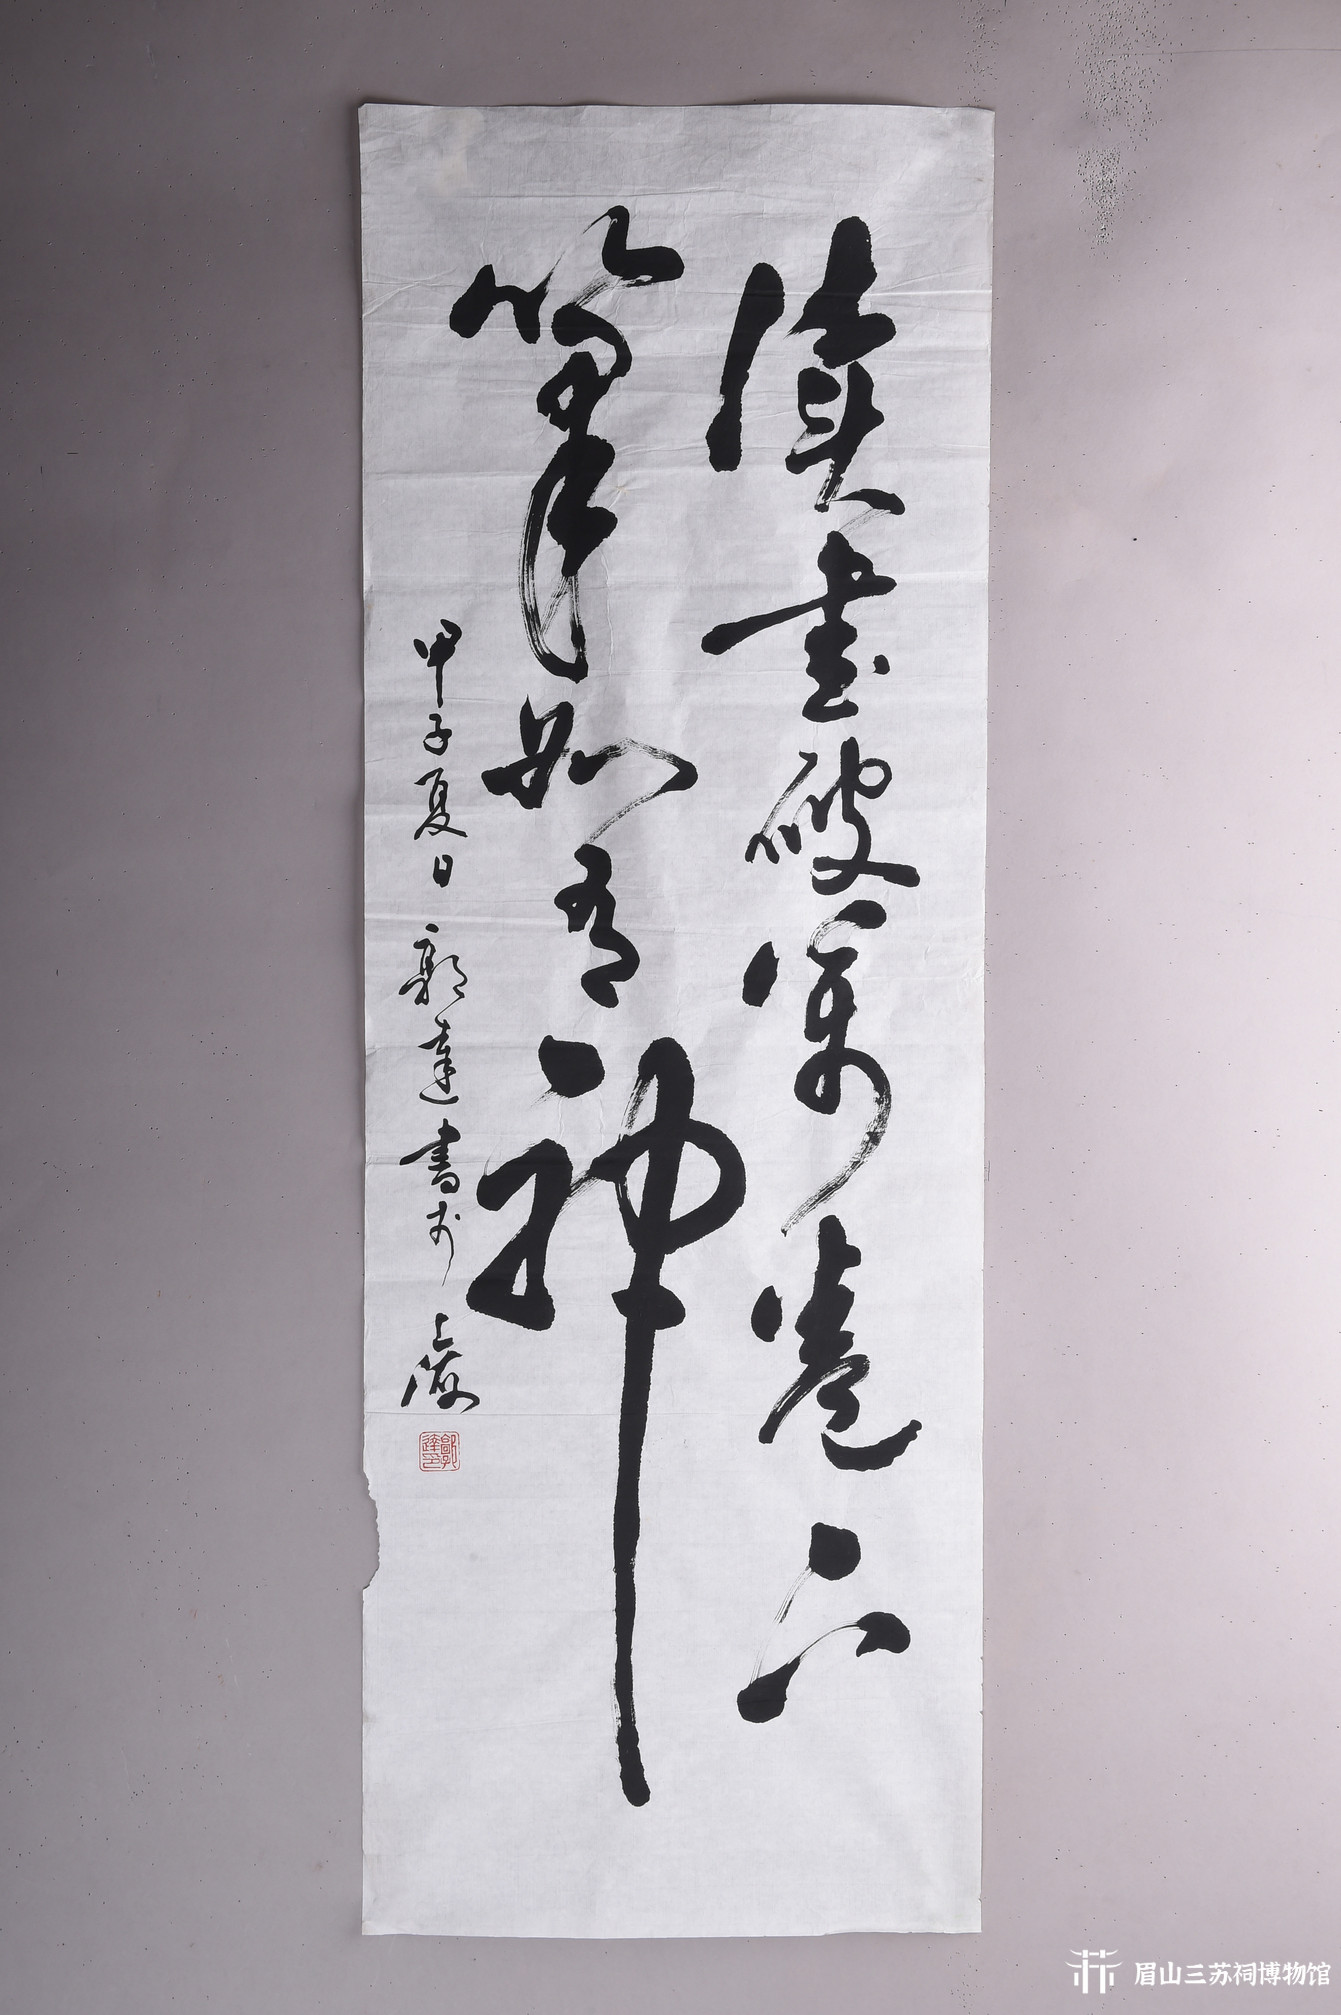 读书破万卷下
笔如有神
甲子夏日郭达書于上海
郭達之印
眉山三苏祠博物馆